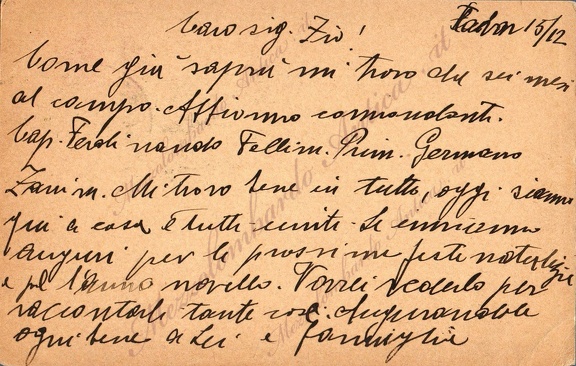 Caro sig. Zio! 15/12
Come già saprà mi trovo da sei mesi
al campo. Abbiamo comandanti.
Cap. Ferdinando Prim. Germano
Mi trovo bene in tutto, oggi siamo
qui a casa e tutti uniti. Le
auguri per le prossime feste natalizie
e pel l'anno novello. Vorrei vederlo per
raccontarle tante cose. Augurandole
ogni bene a Lei e famiglia